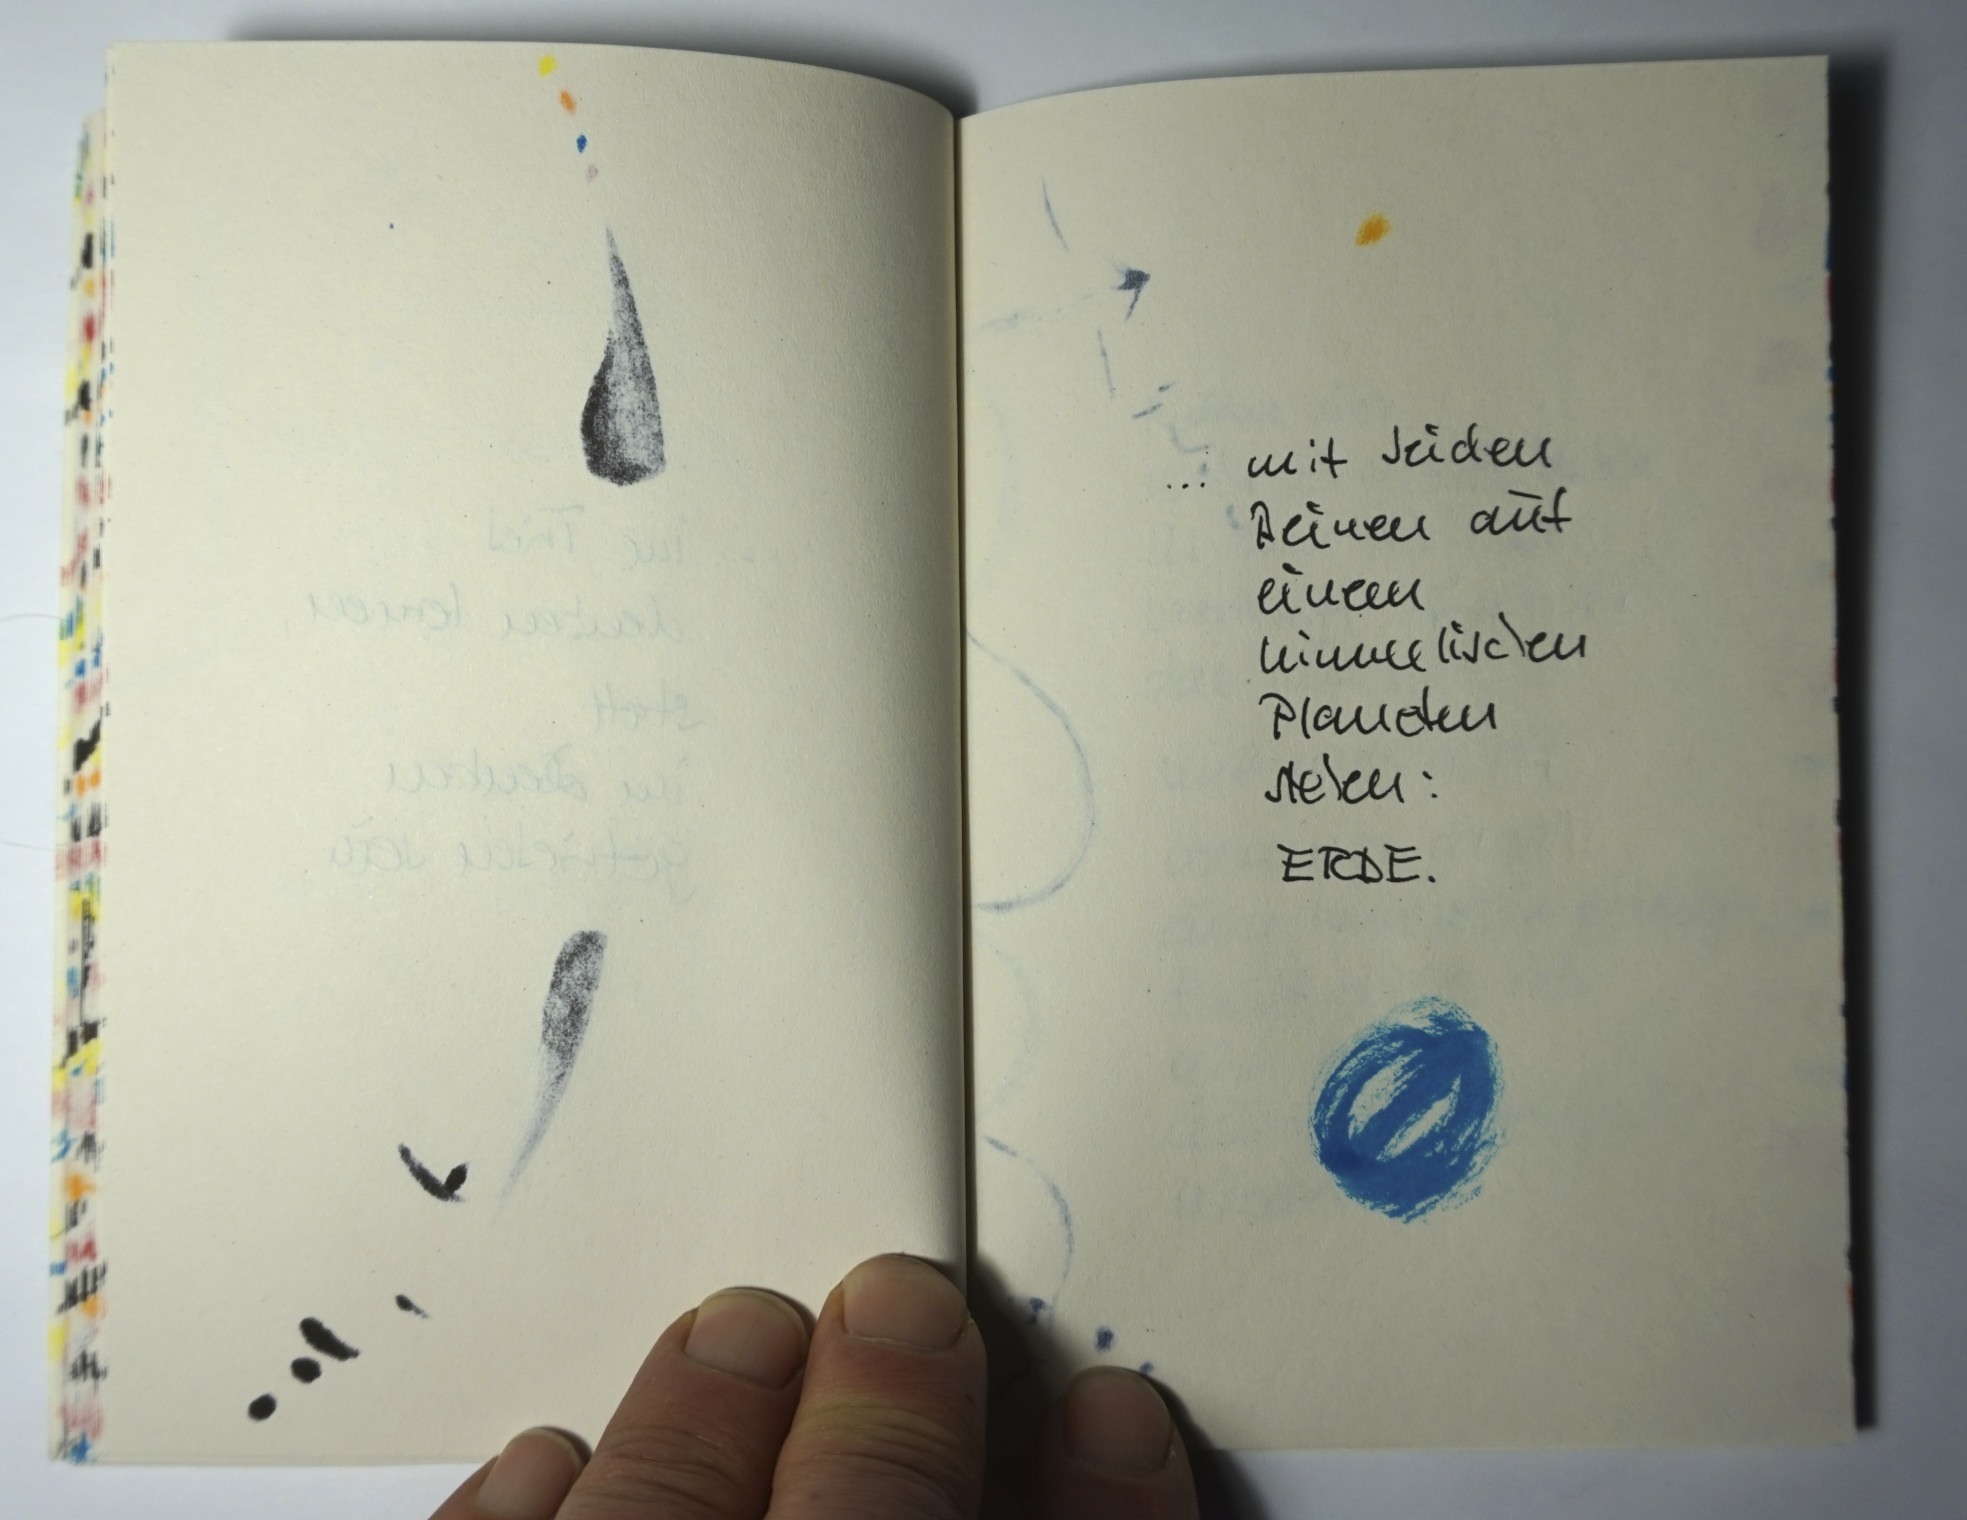 ... mit beiden
Beinen auf
einem
himmlischen
Planeten
stehen:
ERDE.